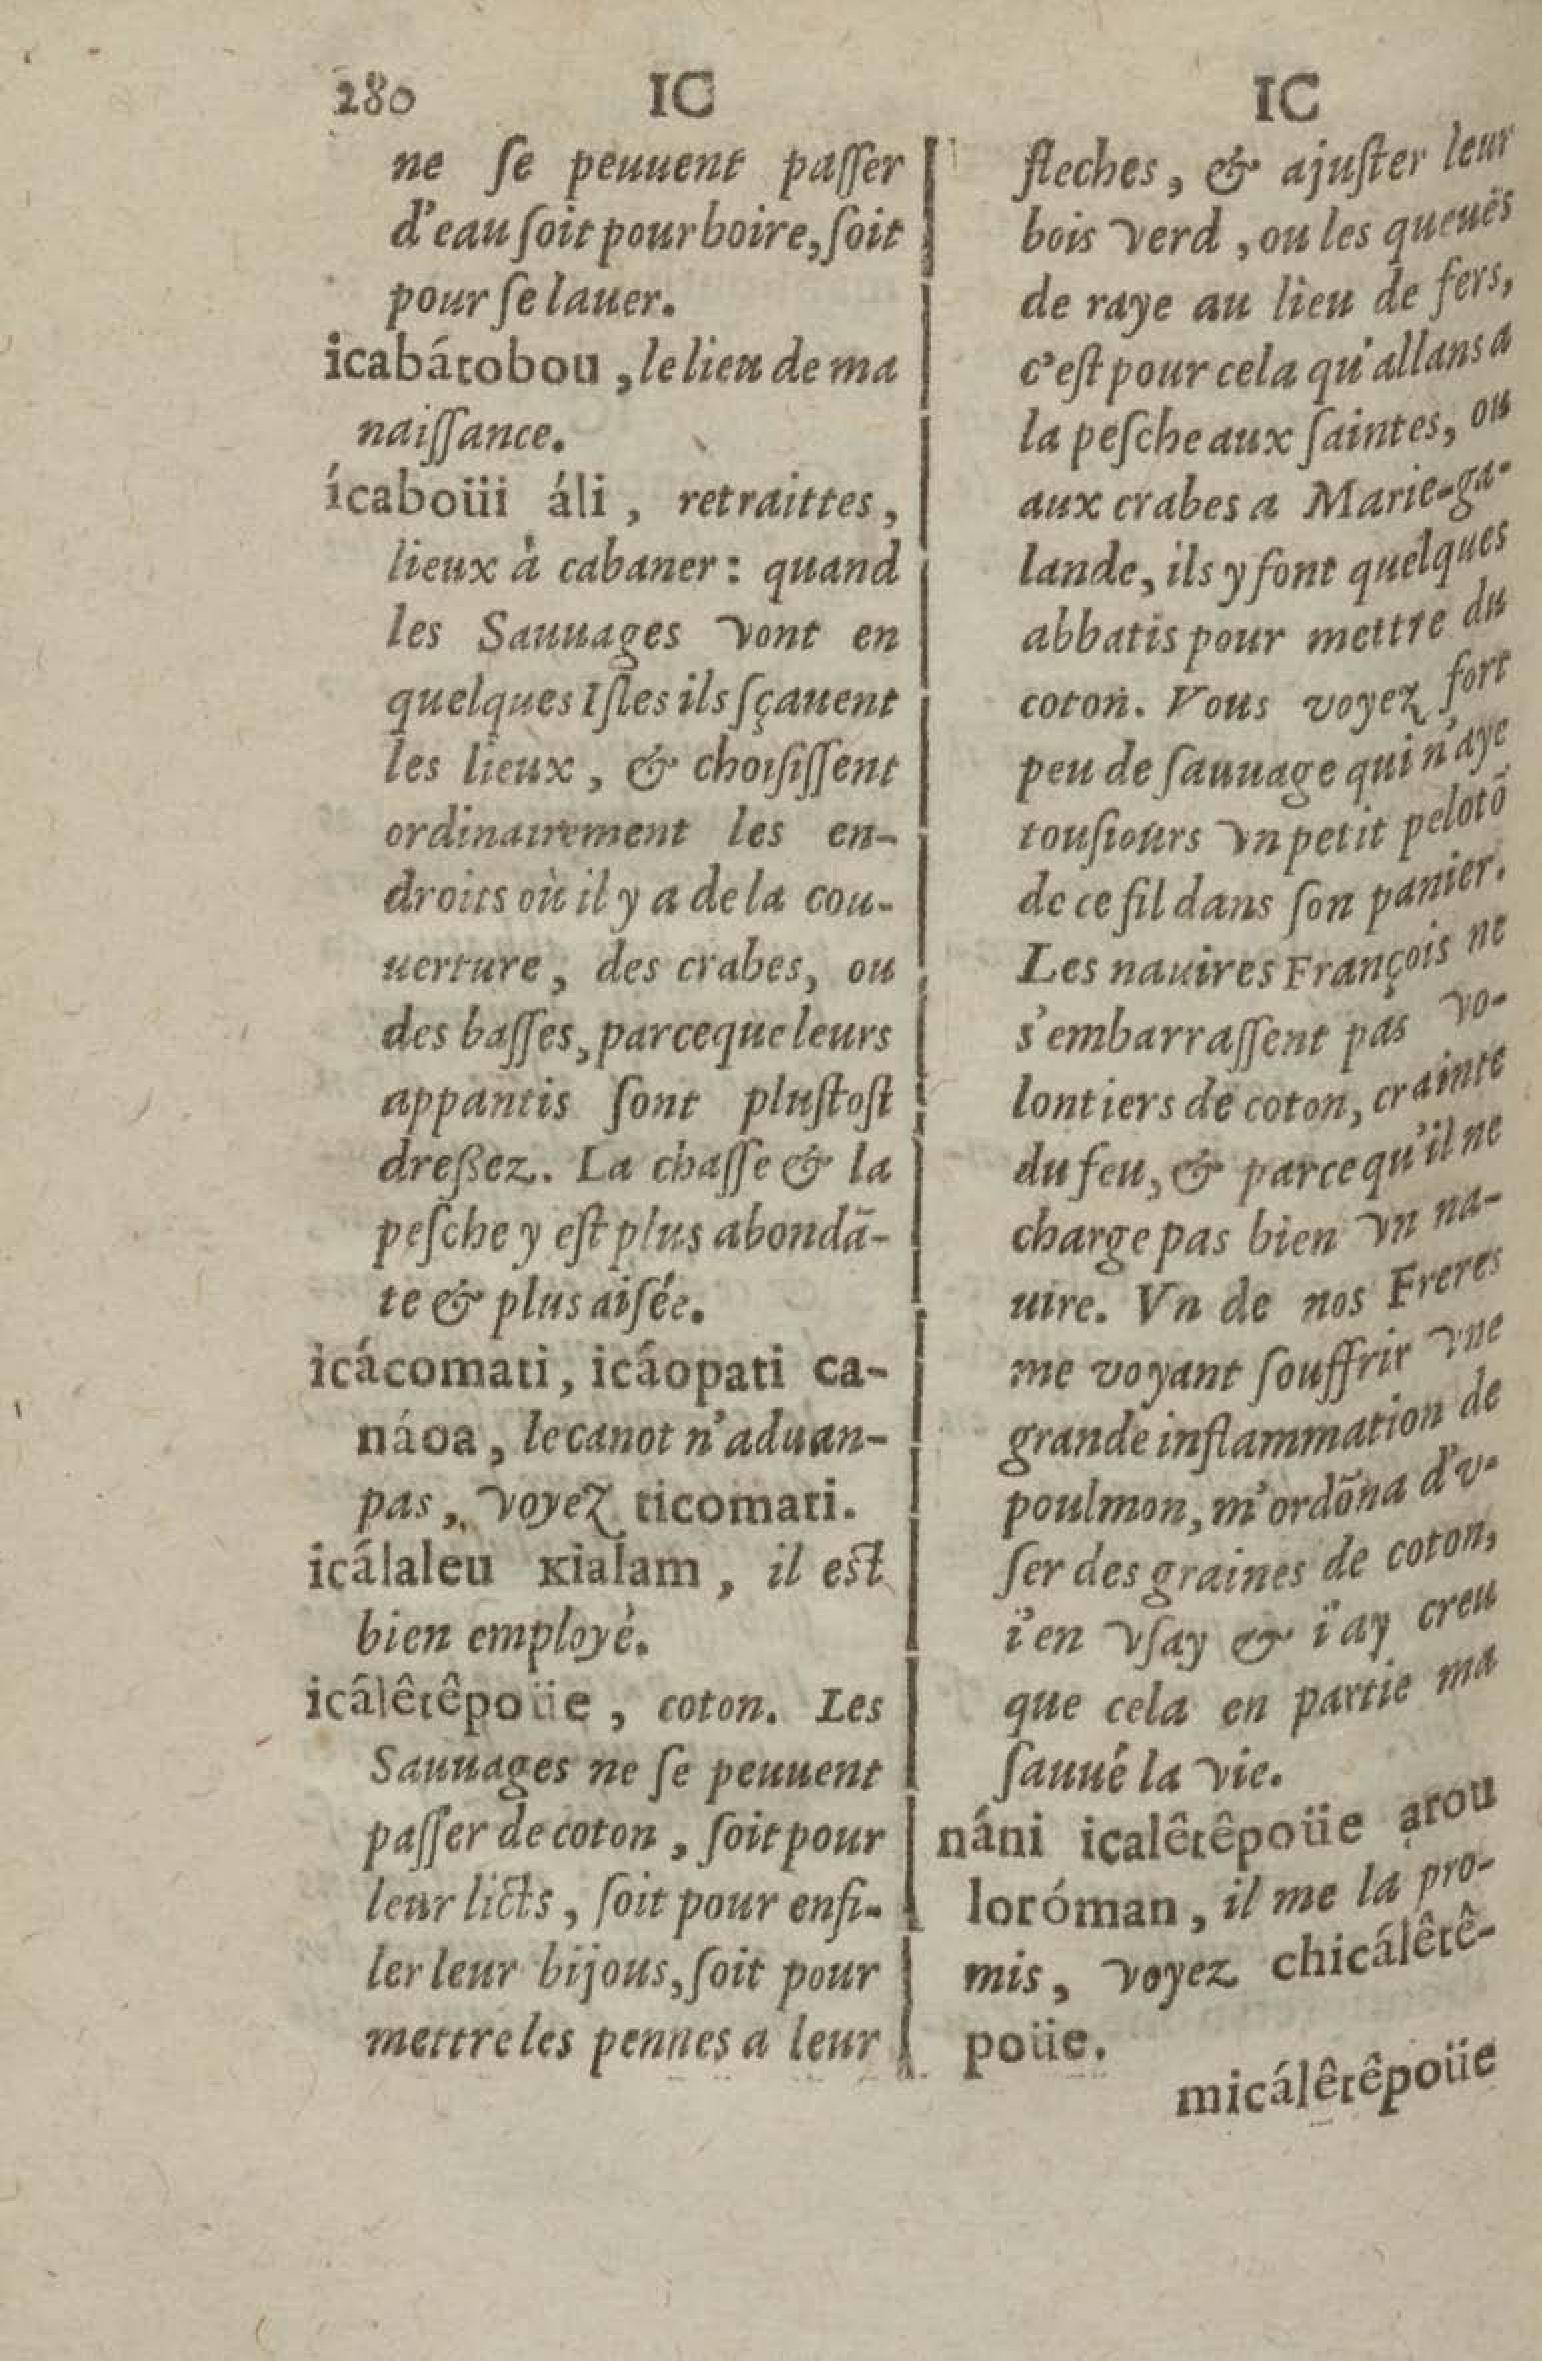 280 IC IC
ne ſe peuuent paſſer
d'eau ſoit pour boire, ſoit
pour ſe lauer.
icabátobou, le lieu de ma
naiſſance.
ícaboüi áli, retraittes,
lieux à cabaner: quand
les Sauuages vont en
quelques Iſles ils ſçauent
les lieux, & choiſiſſent
ordinairement les en-
droits où il y a de la cou-
uerture, des crabes, ou
des baſſes, parceque leurs
appantis ſont pluſtoſt
dreßez. La chaſſe & la
peſche y eſt plus abondā-
te & plus aiſée.
icácomati, icáopati ca-
náoa, le canot n'aduan-
pas, voyez ticomati.
icálaleu Kialam, il eſt
bien employé.
icálêtêpoüe, coton. Les
Sauuages ne ſe peuuent
paſſer de coton, ſoit pour
leur licts, ſoit pour enfi-
ler leur bijous, ſoit pour
mettre les pennes a leur
fleches, & ajuſter leur
bois verd, ou les queuës
de raye au lieu de fers,
c'eſt pour cela qu'allans a
la peſche aux ſaintes, ou
aux crabes a Marie-ga-
lande, ils y font quelques
abbatis pour mettre du
coton. Vous voyez fort
peu de ſauuage qui n'aye
touſiours vn petit pelotō
de ce fil dans ſon panier.
Les nauires François ne
s'embarraſſent pas vo-
lontiers de coton, crainte
du feu, & parce qu'il ne
charge pas bien vn na-
uire. Vn de nos Freres
me voyant ſouffrir vne
grande inflammation de
poulmon, m'ordōna d'v-
ſer des graines de coton,
i'en vſay & i'ay creu
que cela en partie ma
ſauué la vie.
náni icalêtêpoüe arou
loróman, il me la pro-
mis, voyez chicálêtê-
poüe.
micálêtêpoüe